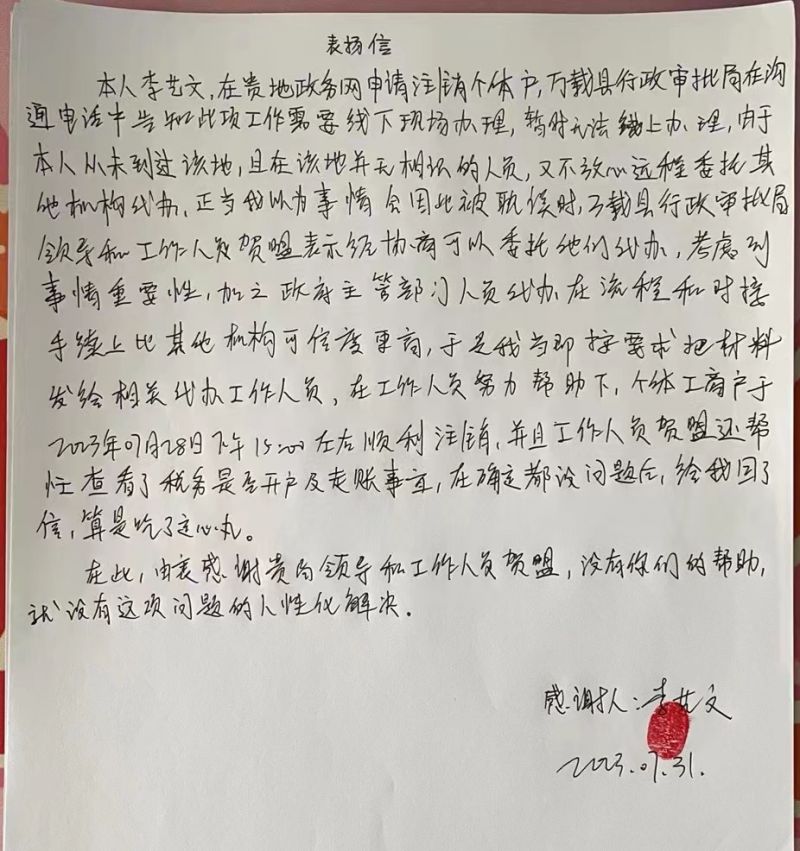 表扬信
本人李艺文,在贵地政务网申请注销个体户,万载县行政审批局在沟
通电话中告知此项工作需要线下现场办理,暂时无法线上办理,由于
本人从未到过该地,且在该地并无相识的人员,又不放心远程委托其
他机构代办。正当我以为事情会因此被耽误时,万载县行政审批局
领导和工作人员贺盟表示经协商可以委托他们代办,考虑到
事情重要性,加之政府主管部门人员代办在流程和对接
手续上比其他机构可信度更高,于是我当即按要求把材料
发给相关代办工作人员,在工作人员努力帮助下,个体工商户于
2023年07月28日下午15:00左右顺利注销,并且工作人员贺盟还帮
忙查看了税务是否开户及走账事宜,在确定都没问题后,给我回了
信,算是吃了定心丸。
在此,由衷感谢贵局领导和工作人员贺盟,没有你们的帮助,
就没有这项问题的人性化解决。
感谢人:李艺文
2023.07.31.